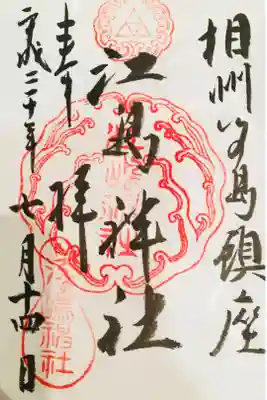 相州江島鎮座
江島神社
奉拝
平成二十年七月十四日
江島神社